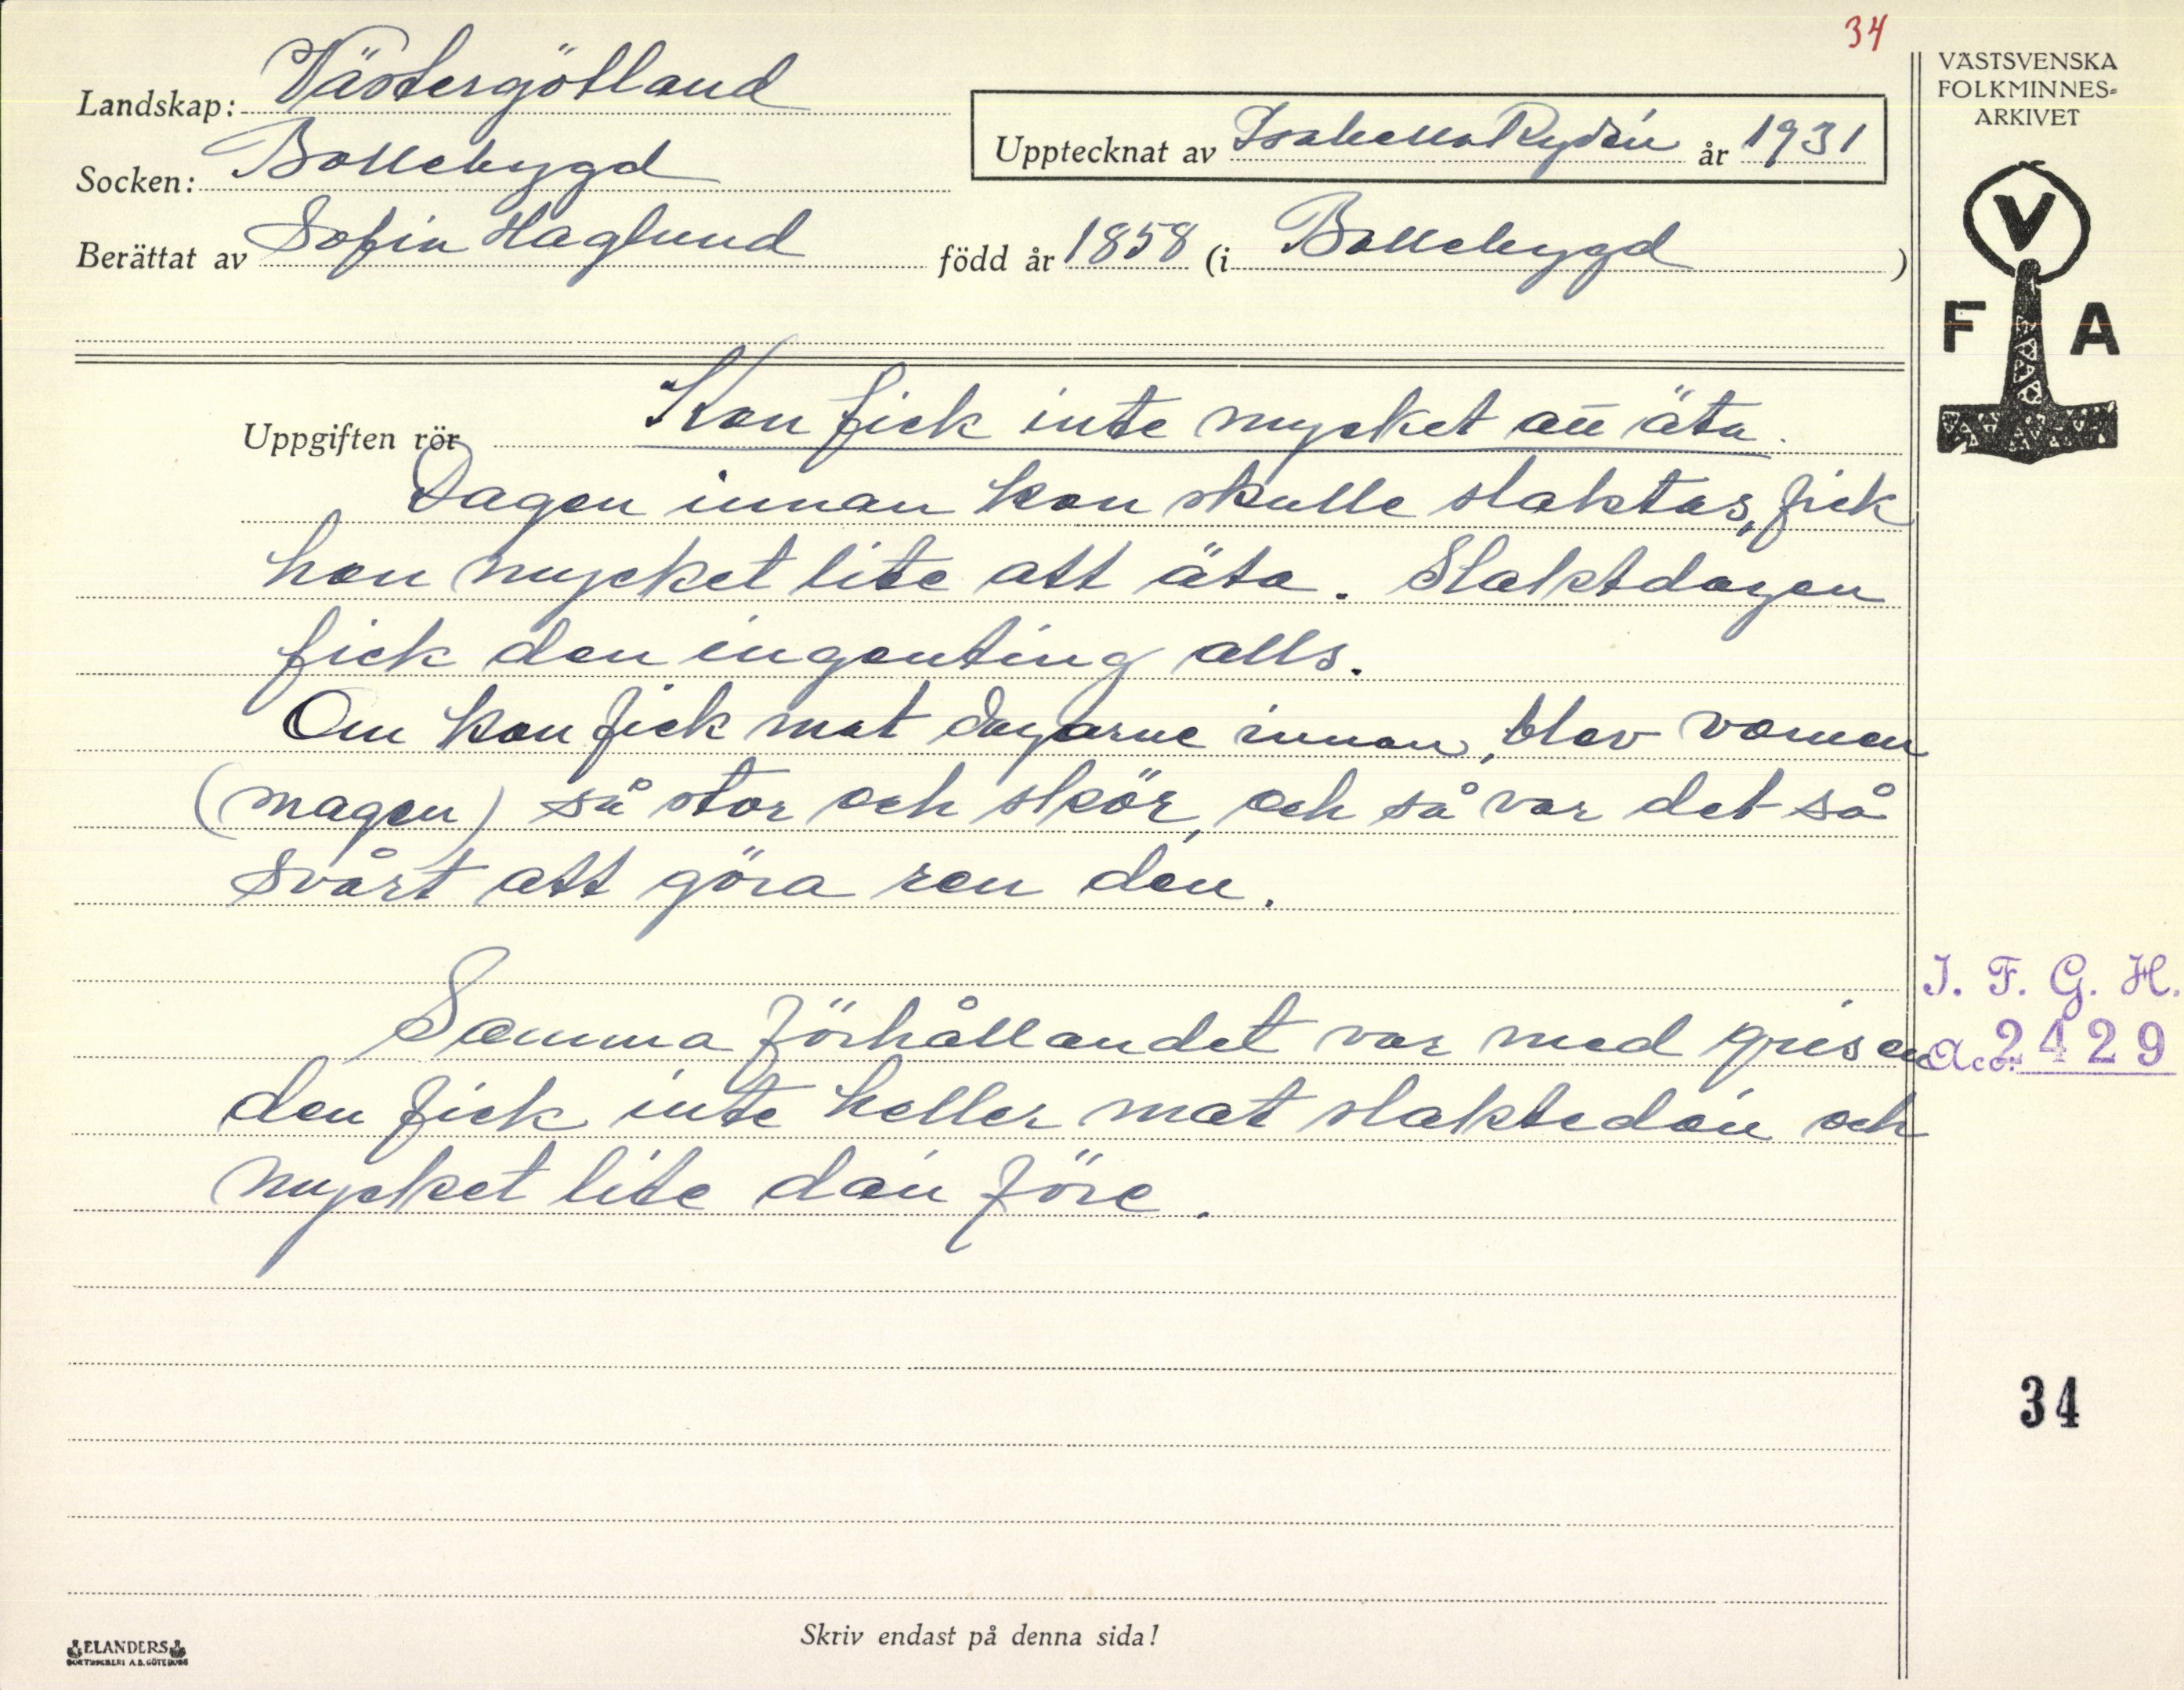 34
Landskap: Västergötland
Socken: Bollebygd
Upptecknat av Isabella Rydén år 1931
Berättat av Sofia Haglund född år 1858 (i Bollebygd )
VÄSTSVENSKA
FOLKMINNES-
ARKIVET
V
F A
Uppgiften rör Kon fick inte mycket att äta.
Dagen innan kon skulle slaktas, fick
hon mycket lite att äta. Slaktdagen
fick den ingenting alls.
Om kon fick mat dagarne innan, blev vomen
(magen) så stor och skör, och så var det så
svårt att göra ren den.
Samma förhållandet var med grisen
den fick inte heller mat slaktedán och
mycket lite dán före.
I. F. G. H.
Acc. 2429
34
Skriv endast på denna sida!
ELANDERS
BOKTRYCKERI A.B. GÖTEBORG